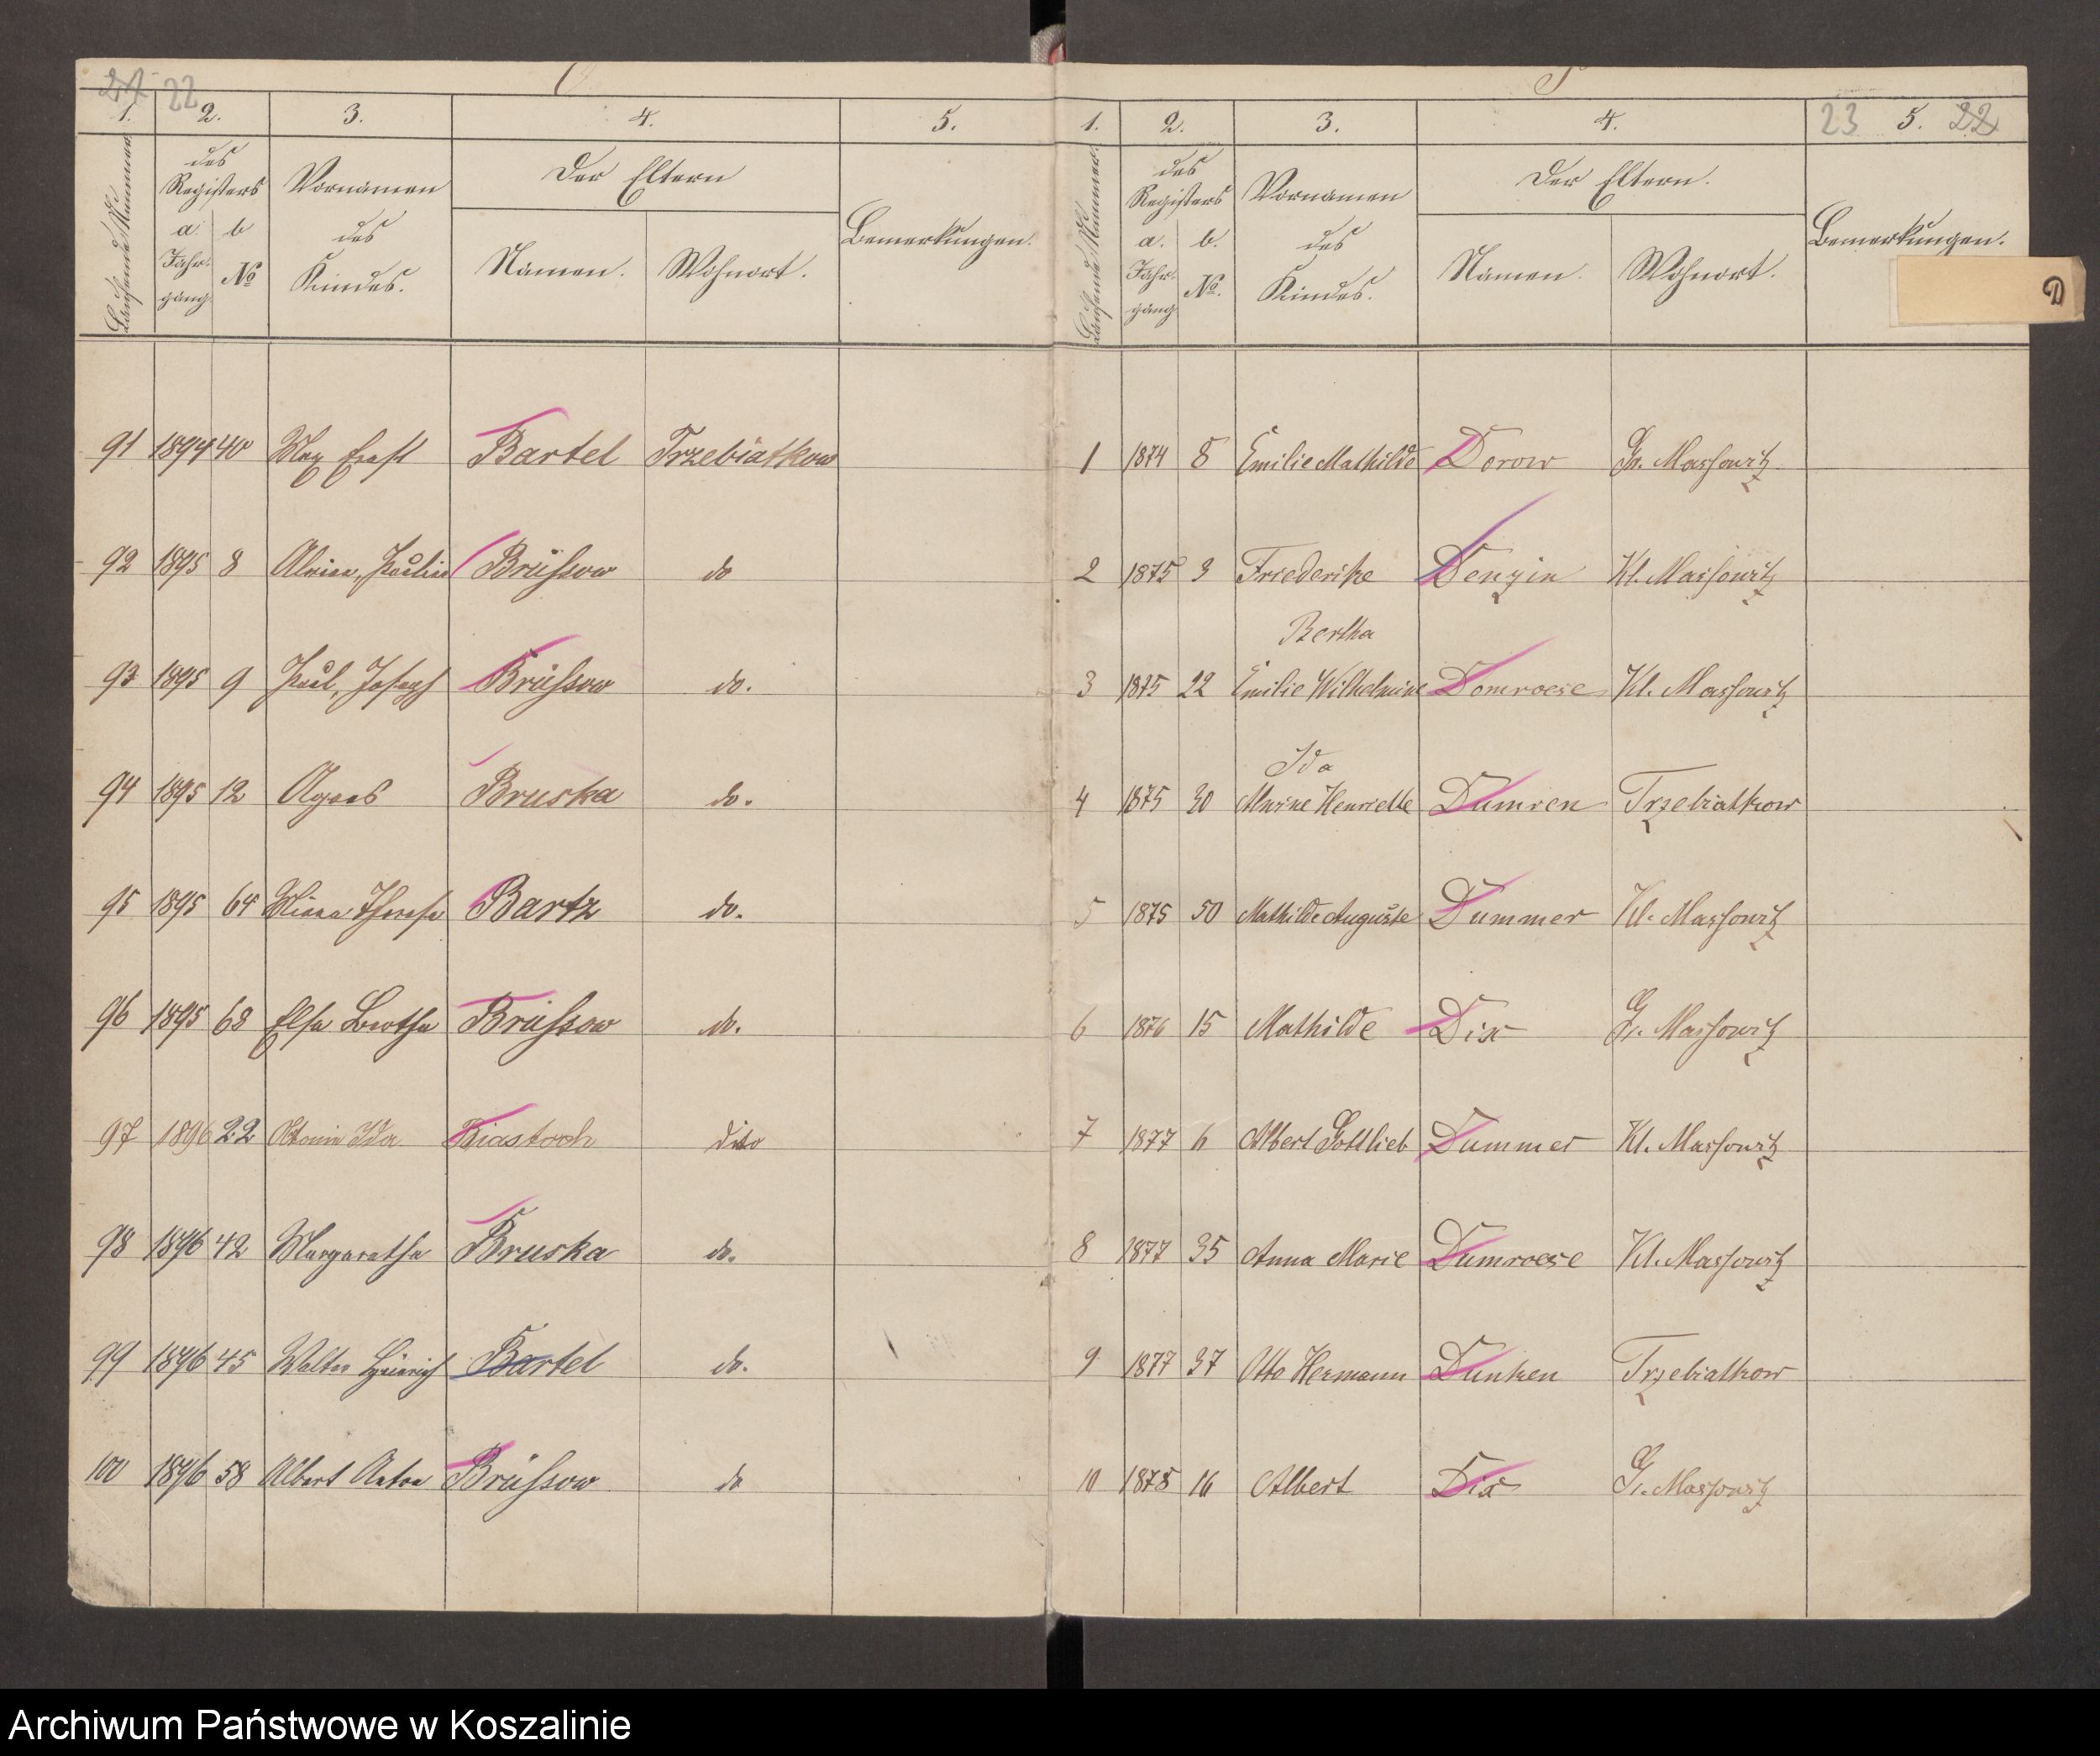 21 22
1. 2. 3. 4. 5.
Laufende Nummer
des Registers
a. Jahrgang
b №
Vornamen des Kindes.
Der Eltern
Namen. Wohnort.
Bemerkungen.
91 1894 40 Max Ernst Bartel Trzebiatkow
92 1895 8 Pauline Brüssow do
93 1895 9 Paul, Joseph Brüssow do.
94 1895 12 Agnes Bruska do.
95 1895 64 Therese Bartz do.
96 1895 68 Elsa Bertha Brüssow do.
97 1896 22 Ida dito
98 1896 42 Margarethe Bruska do.
99 1896 45 Walter Heinrich Bartel do.
100 1896 58 Albert Anton Brüssow do
1. 2. 3. 4. 23 5. 22
Laufende Nummer.
des Registers
a. Jahrgang
b. №.
Vornamen des Kindes.
Der Eltern.
Namen. Wohnort.
Bemerkungen.
D
1 1874 8 Emilie Mathilde Dorow Gr. Massowitz
2 1875 3 Friederike Denzin Kl. Massowitz
Bertha
3 1875 22 Emilie Wilhelmine Domroese Kl. Massowitz
Ida
4 1875 30 Alwine Henriette Dumren Trzebiatkow
5 1875 50 Mathilde Auguste Dummer Kl. Massowitz
6 1876 15 Mathilde Dix Gr. Massowitz
7 1877 6 Albert Gottlieb Dummer Kl. Massowitz
8 1877 35 Anna Marie Dumroese Kl. Massowitz
9 1877 37 Otto Hermann Dunken Trzebiatkow
10 1878 16 Albert Dix Gr. Massowitz
Archiwum Państwowe w Koszalinie